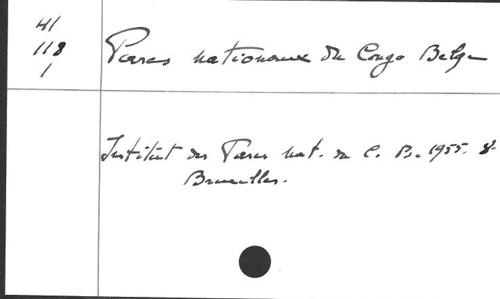 41
118
1
Parcs nationaux du Congo Belge
Institut des Parcs nat. du C. B. 1955. 8-
Bruxelles.